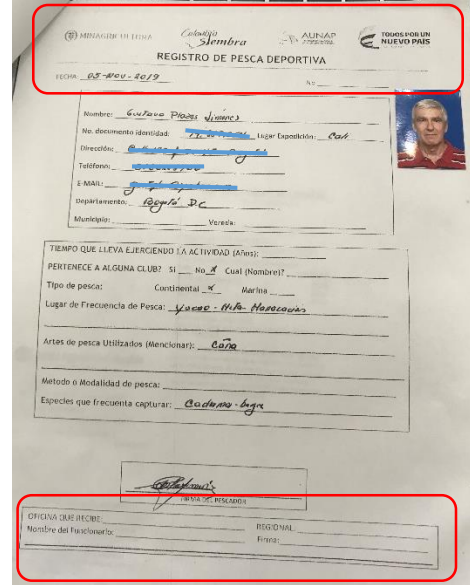 MINAGRICULTURA Colombia Siembra AUNAP TODOS POR UN NUEVO PAIS
REGISTRO DE PESCA DEPORTIVA
FECHA: 05-NOV-2019 No
Nombre: Gustavo
No. documento identidad: Lugar Expedición: Cali
Dirección:
Teléfono:
E-MAIL:
Departamento: Bogotá D.C
Municipio: Vereda:
TIEMPO QUE LLEVA EJERCIENDO LA ACTIVIDAD (Años):
PERTENECE A ALGUNA CLUB? Si No X Cual (Nombre)?
Tipo de pesca: Continental X Marina
Lugar de Frecuencia de Pesca: - Hita -
Artes de pesca Utilizados (Mencionar): Caña
Metodo o Modalidad de pesca:
Especies que frecuenta capturar:
FIRMA DEL PESCADOR
OFICINA QUE RECIBE: REGIONAL:
Nombre del Funcionario: Firma: